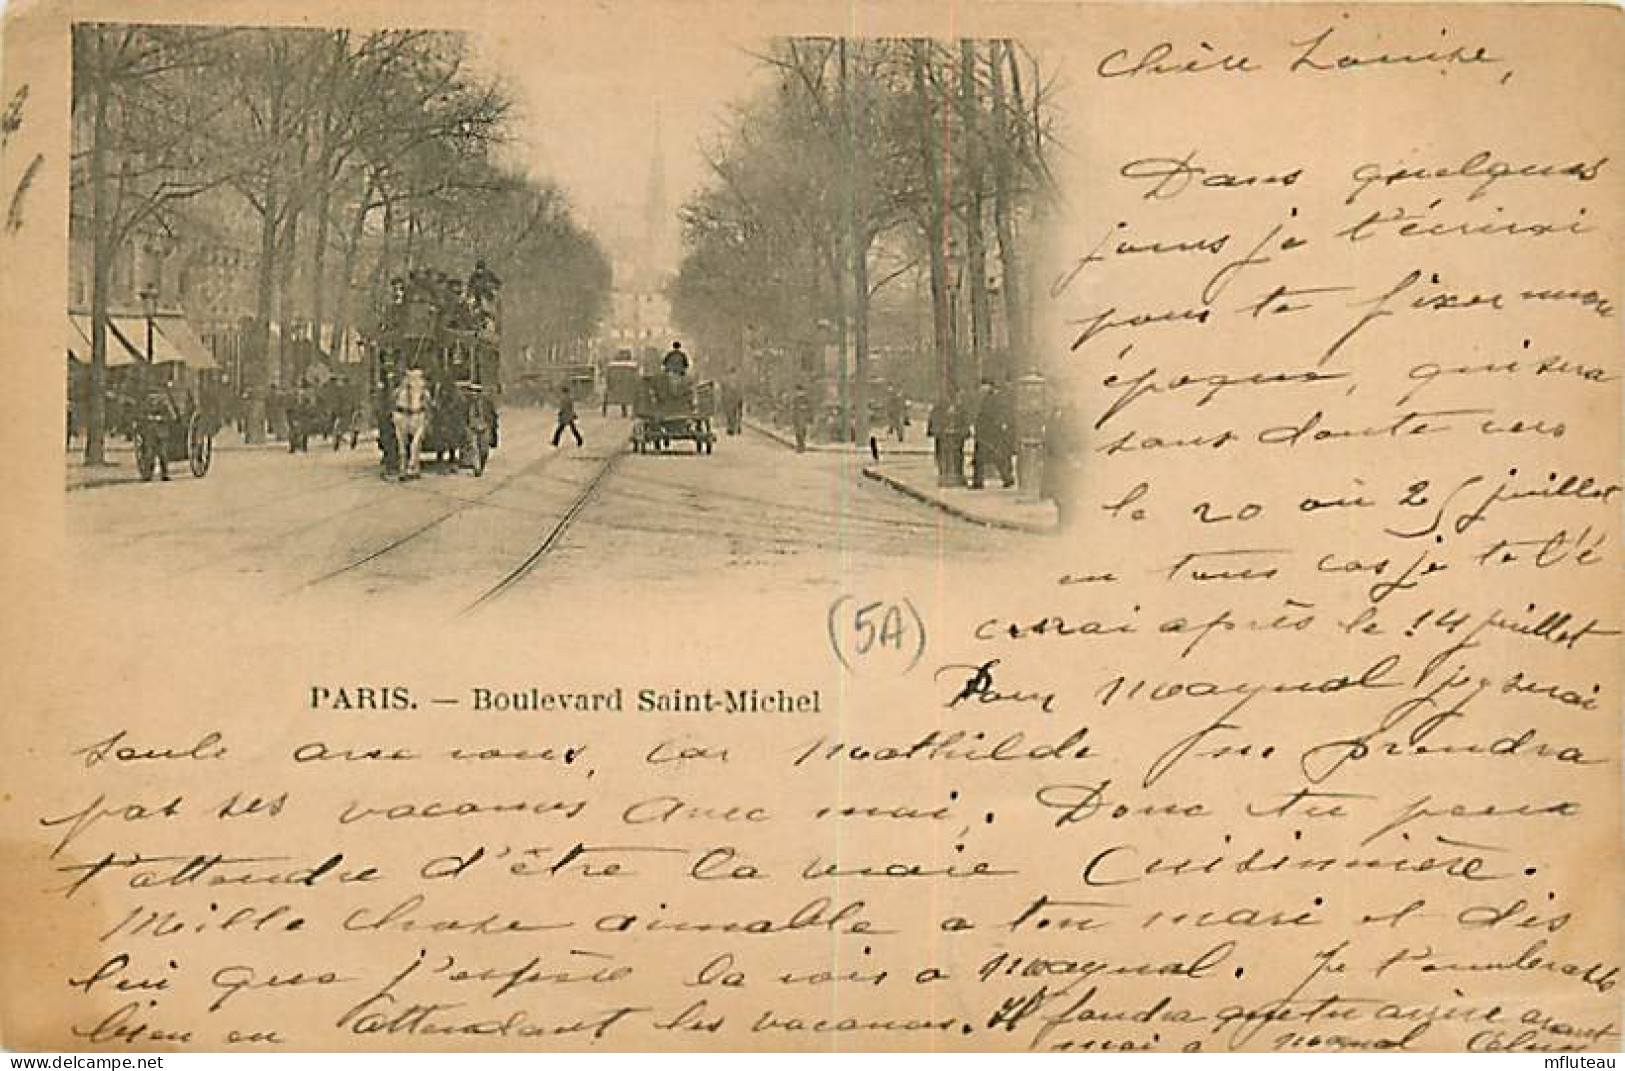 Chère Louise,
Dans quelques
jours je t'écrirai
pour te fixer mon
époque, qui sera
sans doute vers
le 20 ou 25 juillet
en tous cas je te l'é
crirai après le 14 juillet
(5A)
Pour je serai
PARIS. — Boulevard Saint-Michel
seule avec vous, car Mathilde ne prendra
pas ses vacances avec moi. Donc tu peux
t'attendre d'être la vraie Cuisinière.
Mille chose aimable a ton mari et dis
lui que j'espère le voir a Je
bien en attendant les vacances. Il faudra que tu arrive avant
moi a
mfluteau